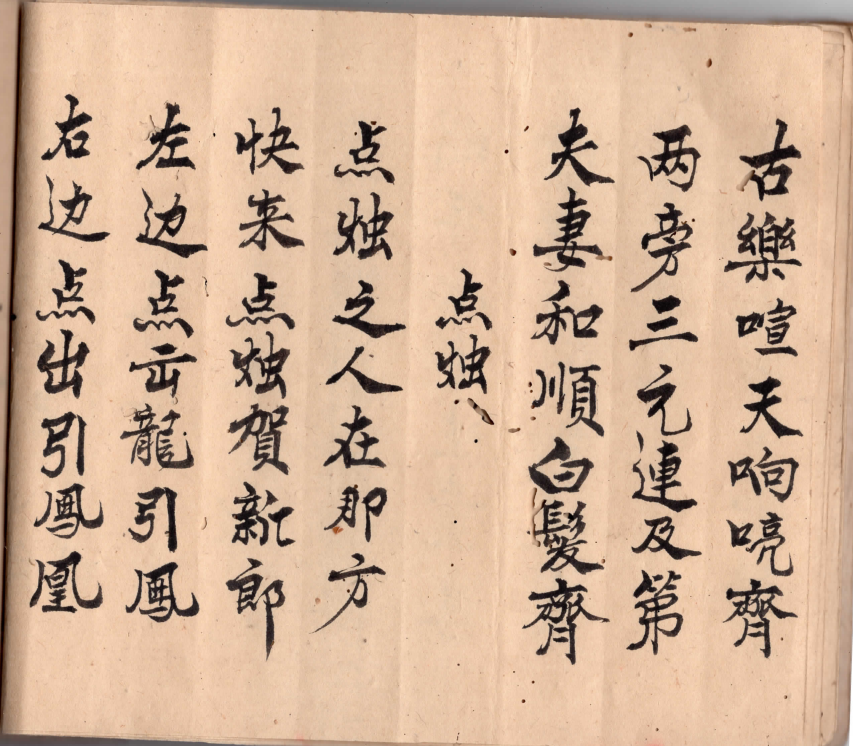 古樂喧天响喨齊
两旁三元連及第
夫妻和順白髮齊
点烛
点烛之人在那方
快来点烛賀新郎
左边点云龍引鳳
右边点出引鳳凰